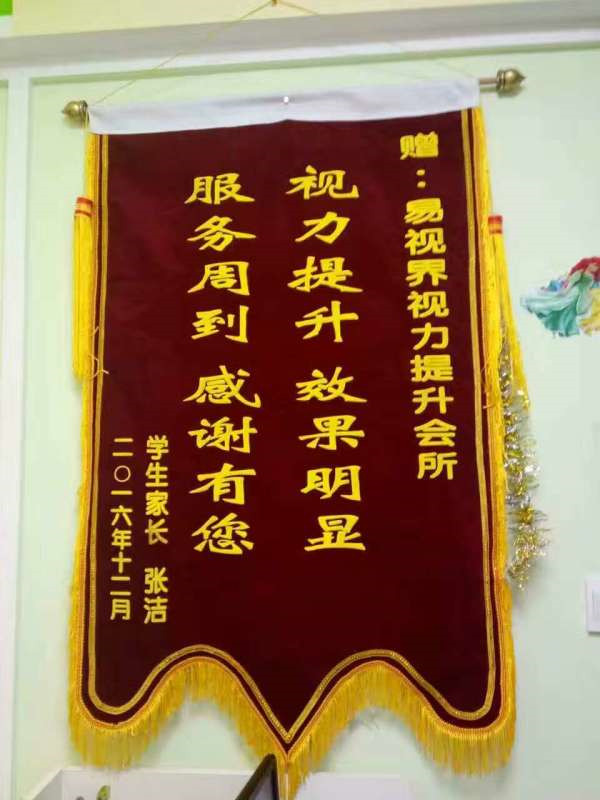 赠：易视界视力提升会所
视力提升 效果明显
服务周到 感谢有您
学生家长 张洁
二〇一六年十二月